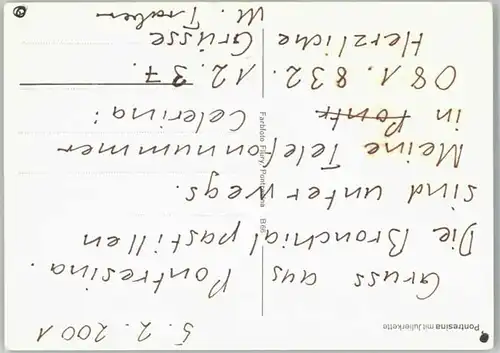 5.2.2001
Gruss aus Pontresina.
Die Bronchialpastillen
sind unterwegs.
Meine Telefonnummer
in Pontr Celerina:
081. 832. 12. 37.
Herzliche Grüsse
M. Traber
Pontresina mit Julierkette
Farbfoto Flury, Pontresina B 66